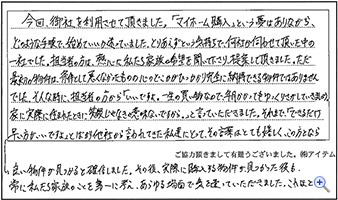 今回、御社を利用させて頂きました。「マイホーム購入」という夢はありながら、
どのような手順で、始めていいか迷っていました。とりあえずという気持ちで何社か伺わせて頂いた中の
一社でした。担当者の方は、熱心に私たち家族の希望を聞いて下さり、提案して頂きました。ただ
最初の物件は、決して悪くなかったもののどこかひっかかり完全に納得できる物件ではありません
でした。そんな時に、担当者の方から「いいですよ。一生の買い物なので、時間がかかってもゆっくりさがしていきましょう。
家に実際に住まれたときに失敗じゃなかったと思わないですから…」と言っていただきました。それまで、「できるだけ
早い方がいいですよ」とばかり他社から言われてきた私達にとって、その言葉はとても嬉しく、この方となら
ご協力頂きまして有難うございました。㈱アイテム
良い物件が見つかると確信しました。その後、実際に購入する物件が見つかった後も、
常に私たち家族のことを第一に考え、あらゆる場面で気を遣っていただきました。これほど